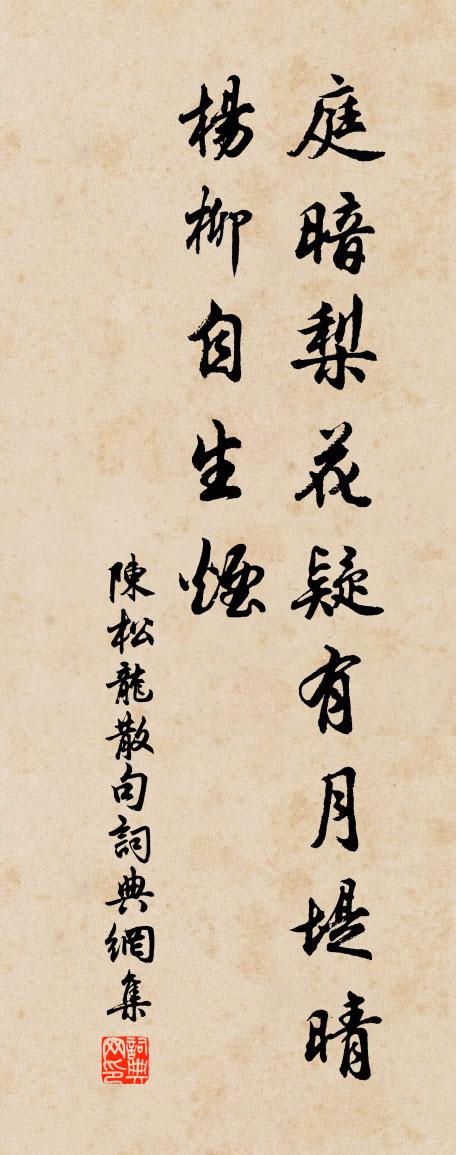 庭暗梨花疑有月堤晴
楊柳自生煙
陳松龍散句詞典網集
詞典网印